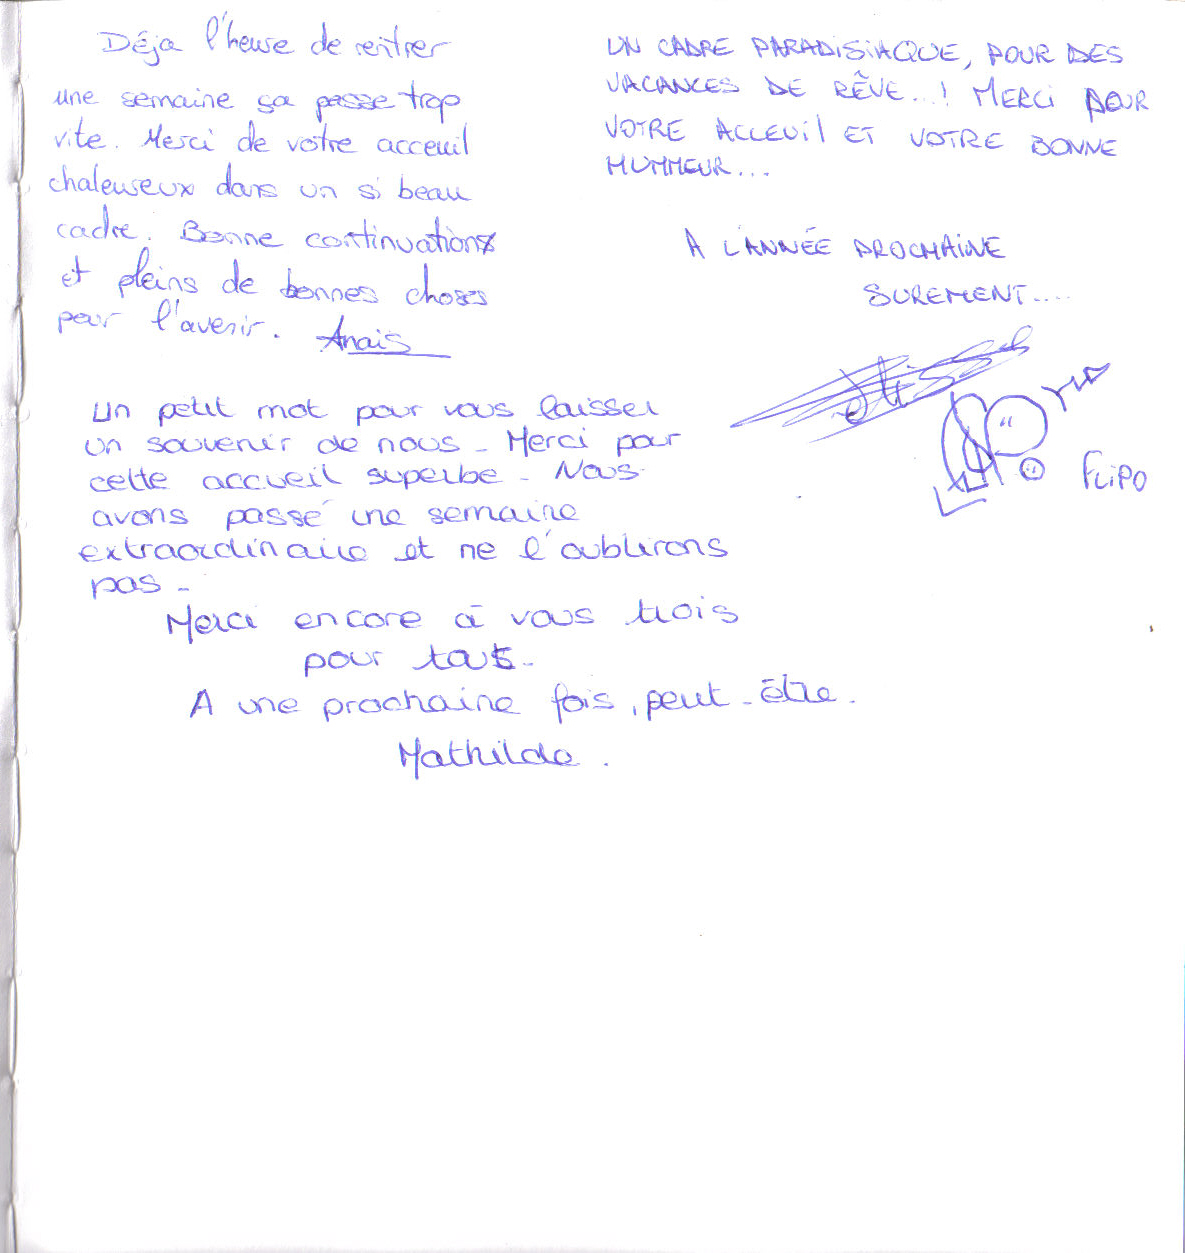 Déja l'heure de rentrer
une semaine ça passe trop
vite. Merci de votre acceuil
chaleureux dans un si beau
cadre. Bonne continuation
et pleins de bonnes choses
pour l'avenir. Anais
UN CADRE PARADISIAQUE, POUR DES
VACANCES DE RÊVE...! MERCI POUR
VOTRE ACCEUIL ET VOTRE BONNE
HUMMEUR...
A L'ANNÉE PROCHAINE
SUREMENT....
FLIPO
Un petit mot pour vous laisser
un souvenir de nous - Merci pour
cette accueil superbe - Nous
avons passé une semaine
extraordinaire et ne l'oublirons
pas -
Merci encore à vous trois
pour tout -
A une prochaine fois, peut-être.
Mathilde.